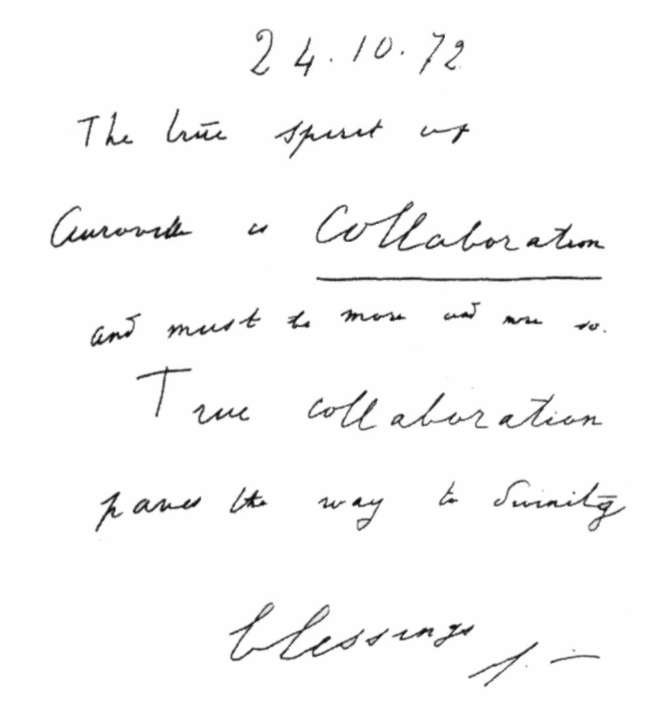 24.10.72
The true spirit of
Auroville is Collaboration
and must be more and more so.
True collaboration
paves the way to Divinity
blessings